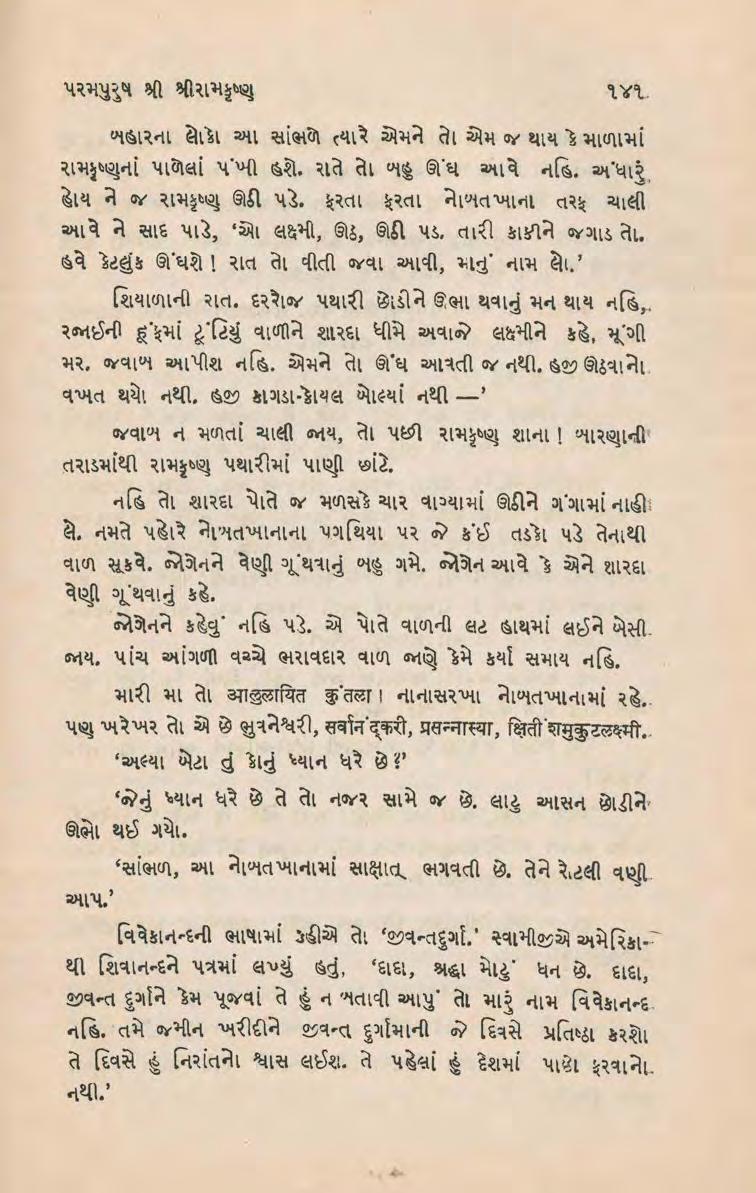 પરમપુરુષ શ્રી શ્રીરામકૃષ્ણ ૧૪૧
બહારના લોકો આ સાંભળે ત્યારે એમને તો એમ જ થાય કે માળામાં
રામકૃષ્ણનાં પાળેલાં પંખી હશે. રાતે તો બહુ ઊંઘ આવે નહિ. અંધારું
હોય ને જ રામકૃષ્ણ ઊઠી પડે. ફરતા ફરતા નોબતખાના તરફ ચાલી
આવે ને સાદ પાડે, ‘ઓ લક્ષ્મી, ઊઠ, ઊઠી પડ. તારી કાકીને જગાડ તો.
હવે કેટલુંક ઊંઘશે ! રાત તો વીતી જવા આવી, માનું નામ લો.’
શિયાળાની રાત. દરરોજ પથારી છોડીને ઊભા થવાનું મન થાય નહિ,
રજાઈની હૂંફમાં ટૂંટિયું વાળીને શારદા ધીમે અવાજે લક્ષ્મીને કહે, મૂંગી
મર. જવાબ આપીશ નહિ. એમને તો ઊંઘ આવતી જ નથી. હજી ઊઠવાનો
વખત થયો નથી. હજી કાગડા-કોયલ બોલ્યાં નથી —’
જવાબ ન મળતાં ચાલી જાય, તો પછી રામકૃષ્ણ શાના ! બારણાની
તરાડમાંથી રામકૃષ્ણ પથારીમાં પાણી છાંટે.
નહિ તો શારદા પોતે જ મળસકે ચાર વાગ્યામાં ઊઠીને ગંગામાં નાહી
લે. નમતે પહોરે નોબતખાનાના પગથિયા પર જે કંઈ તડકો પડે તેનાથી
વાળ સૂકવે. જોગેનને વેણી ગૂંથવાનું બહુ ગમે. જોગેન આવે કે એને શારદા
વેણી ગૂંથવાનું કહે.
જોગેનને કહેવું નહિ પડે. એ પોતે વાળની લટ હાથમાં લઈને બેસી
જાય. પાંચ આંગળી વચ્ચે ભરાવદાર વાળ જાણે કેમે કર્યા સમાય નહિ.
મારી મા તો आलुलायित कुंतला । નાનાસરખા નોબતખાનામાં રહે.
પણ ખરેખર તો એ છે ભુવનેશ્વરી, सर्वानंद्करी, प्रसन्नास्या, क्षितीशमुकुटलक्ष्मी.
‘અલ્યા બેટા તું કોનું ધ્યાન ધરે છે?’
‘જેનું ધ્યાન ધરે છે તે તો નજર સામે જ છે. લાટુ આસન છોડીને
ઊભો થઈ ગયો.
‘સાંભળ, આ નોબતખાનામાં સાક્ષાત્ ભગવતી છે. તેને રોટલી વણી
આપ.’
વિવેકાનન્દની ભાષામાં કહીએ તો ‘જીવન્તદુર્ગા.’ સ્વામીજીએ અમેરિકા-
થી શિવાનન્દને પત્રમાં લખ્યું હતું, ‘દાદા, શ્રદ્ધા મોટું ધન છે. દાદા,
જીવન્ત દુર્ગાને કેમ પૂજવાં તે હું ન બતાવી આપું તો મારું નામ વિવેકાનન્દ
નહિ. તમે જમીન ખરીદીને જીવન્ત દુર્ગામાની જે દિવસે પ્રતિષ્ઠા કરશો
તે દિવસે હું નિરાંતનો શ્વાસ લઈશ. તે પહેલાં હું દેશમાં પાછો ફરવાનો
નથી.’